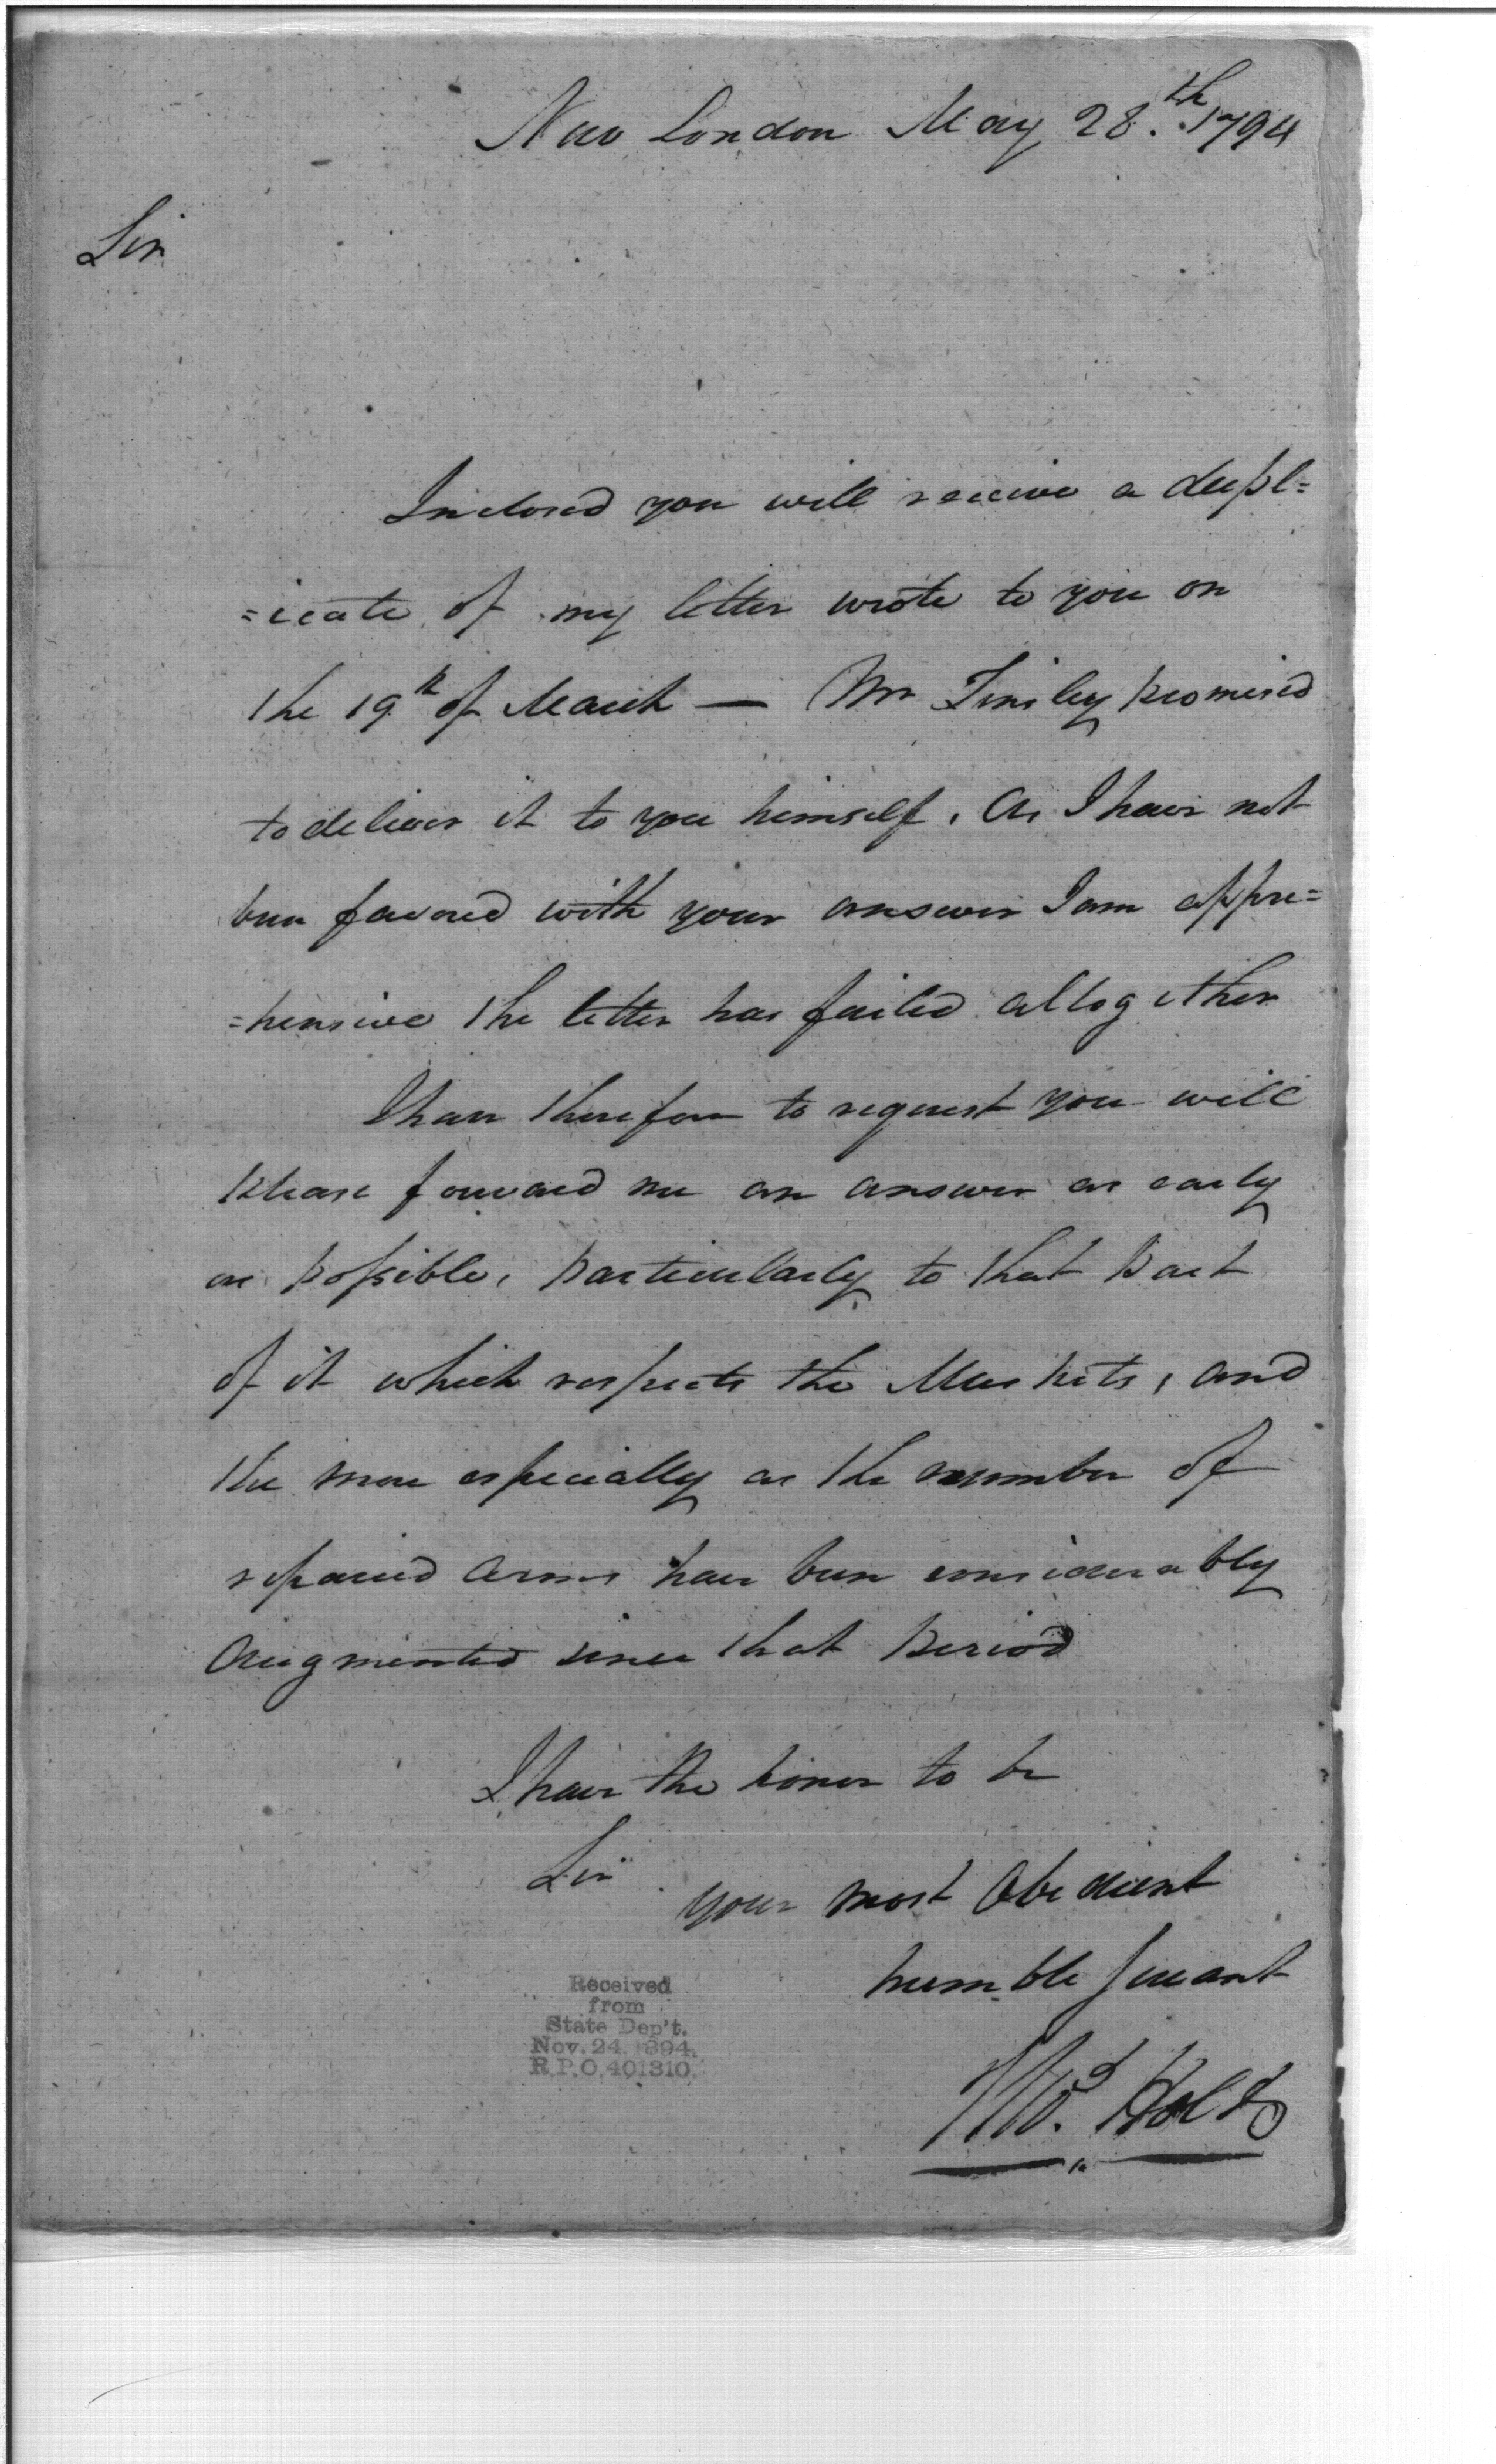 New London May 28.th 1794
Sir
Inclosed you will receive a dupl=
=icate of my letter wrote to you on
the 19th of March — Mr Tinsley promised
to deliver it to you himself. As I have not
been favored with your answer I am appre=
=hensive the letter has failed altogether
I have therefore to request you will
please forward me an answer as early
as possible, particularly to that part
of it which respects the Muskets, and
the more especially as the number of
repaired arms have been considerably
augmented since that period
I have the honor to be
Sir
your most Obedient
humble servant
Received
from
State Dep't.
Nov. 24. 1894.
R.P.O. 401310.
Holt